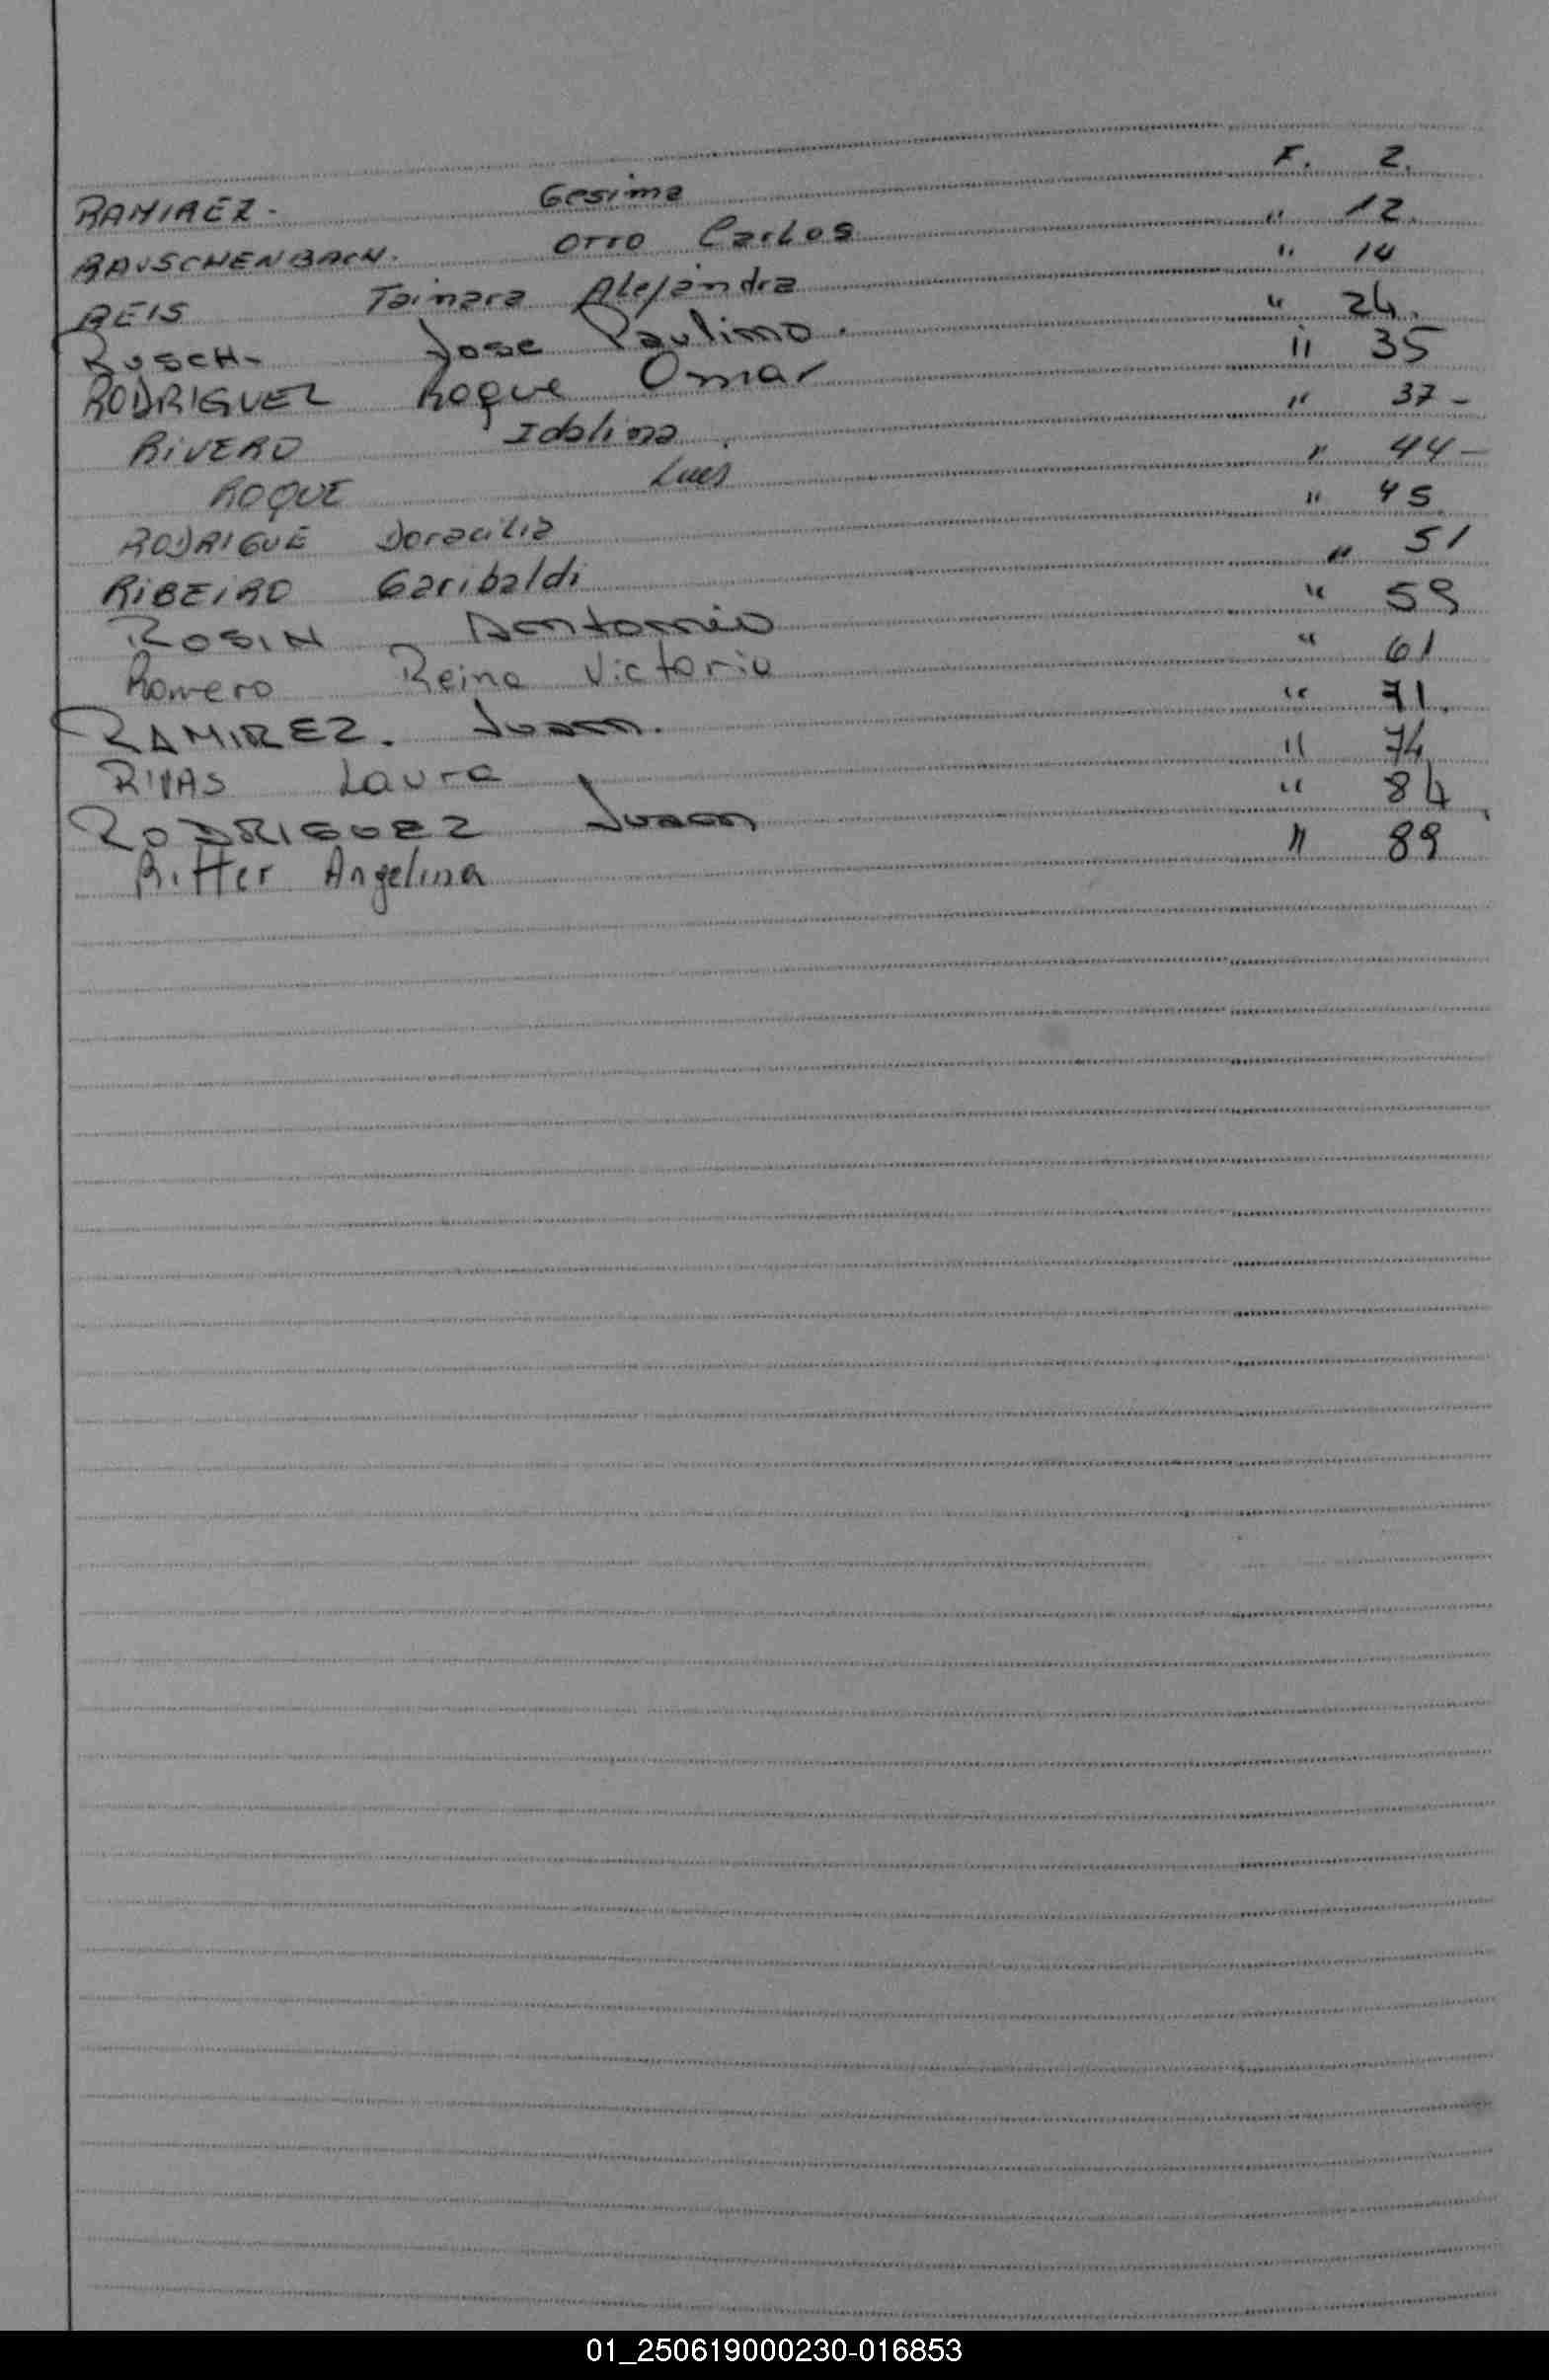 RAMIREZ. Gesima F. 2.
RAUSCHENBACH. OTTO Carlos " 12.
REIS Tainara Alejandra " 14
RUSCH- Jose Paulino. " 24.
RODRIGUEZ Roque Omar " 35
RIVERO Idalina. " 37-
ROQUE Luis " 44-
RODRIGUE Doracilia " 45
RIBEIRO Garibaldi " 51
ROSIN Antonio " 59
Romero Reina Victoria " 61
RAMIREZ. Juan. " 71.
RIVAS Laura " 74
RODRIGUEZ Juan " 84
Ritter Angelina " 89
01_250619000230-016853